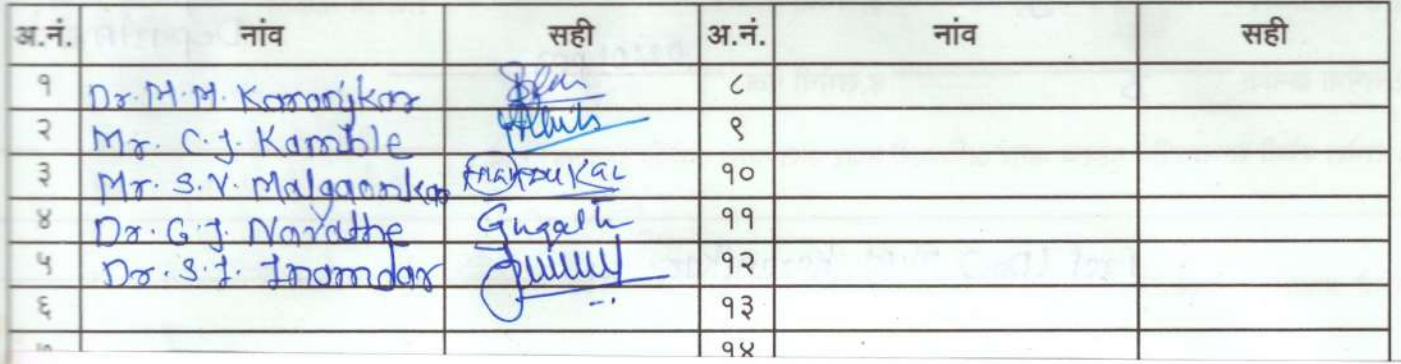 अ.नं. नांव सही अ.नं. नांव सही
१ Dr. M. M. Karanjkar ८
२ Mr. C. J. Kamble ९
३ Mr. S. V. Malgaonkar १०
४ Dr. G. J. Navathe ११
५ Dr. S. J. Inamdar १२
६ १३
१४